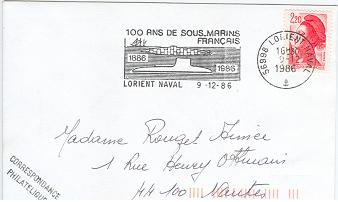 100 ANS DE SOUS_MARINS
FRANÇAIS
1886
1986
LORIENT NAVAL 9-12-86
56998 LORIENT NAVAL
16H30
9-12
1986
2,20
Madame Rouzet Aimée
1 Rue Henry
44100 Nantes
CORRESPONDANCE
PHILATELIQUE